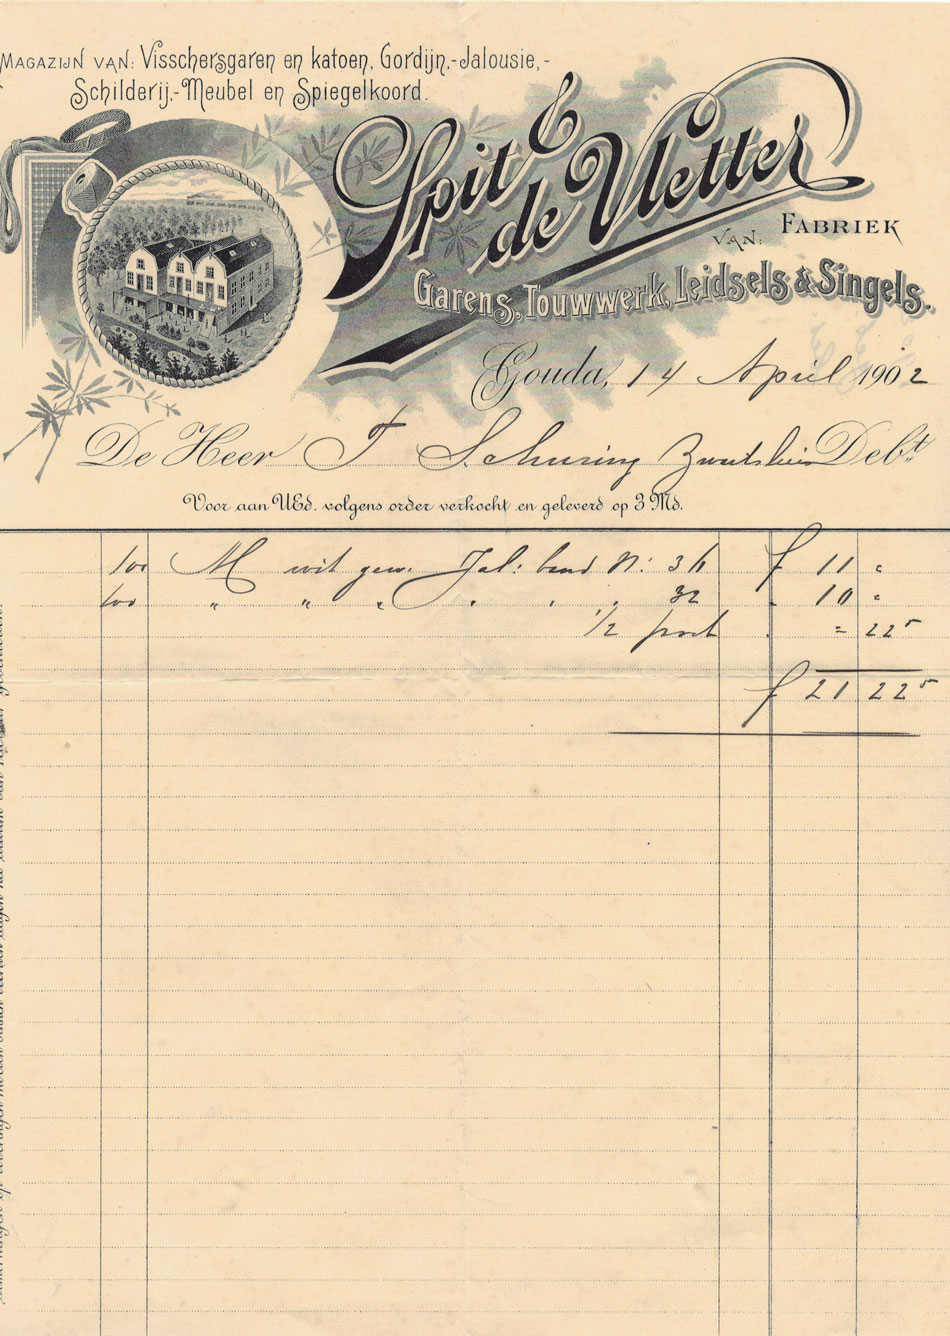 MAGAZIJN VAN: Visschersgaren en katoen, Gordijn,-Jalousie,-
Schilderij,-Meubel en Spiegelkoord.
Spit & de Vletter
VAN: FABRIEK
Garens, Touwwerk, Leidsels & Singels.
Gouda, 14 April 1902
De Heer F Schuring Zwartsluis Debt.
Voor aan UEd. volgens order verkocht en geleverd op 3 Md.
100 M wit gew. Jal: band N: 36 f 11 "
100 " " " " " " 32 " 10 "
1/2 port " = 22⁵
f 21 22⁵